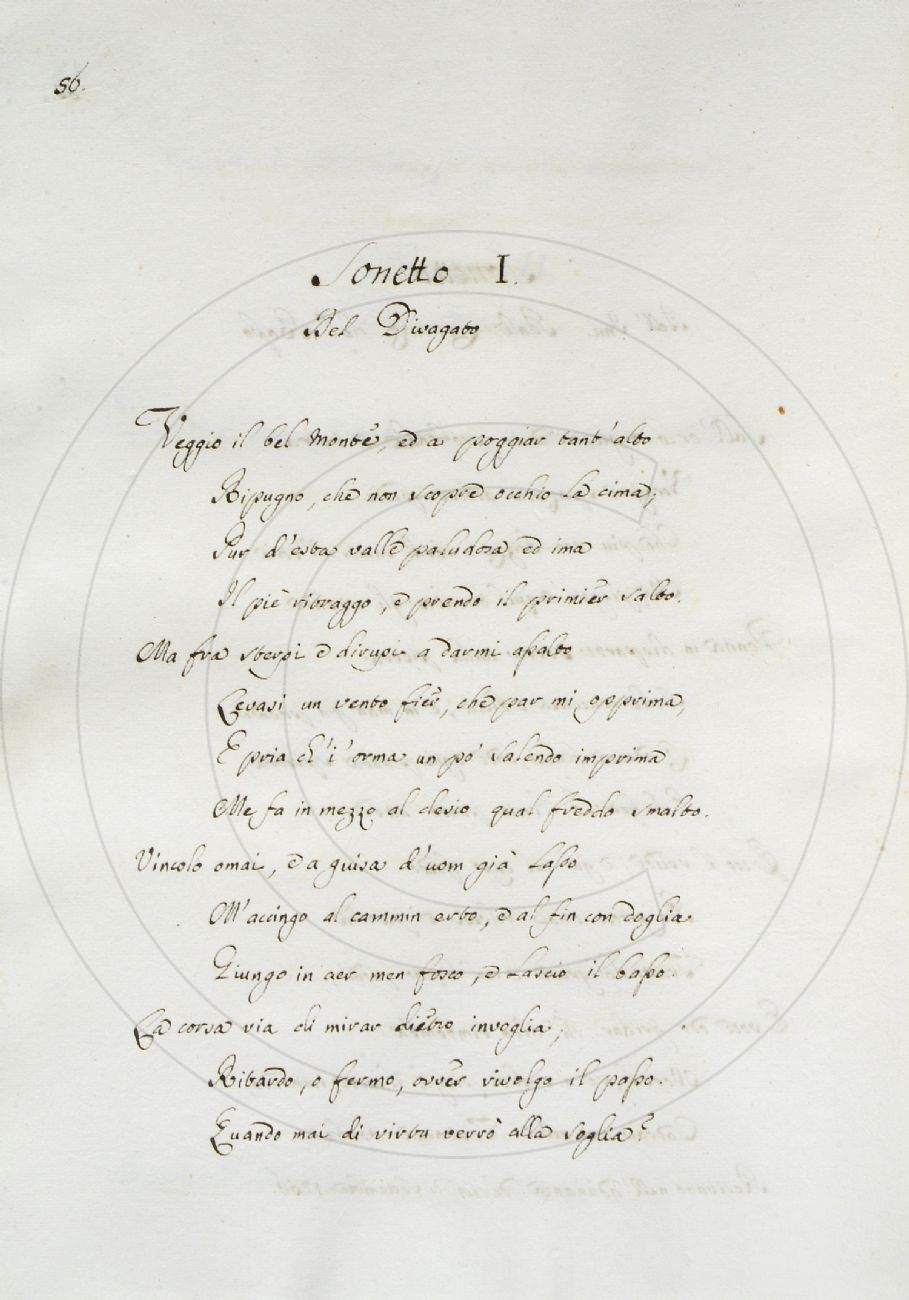 56.
Sonetto I.
Del Divagato
Veggio il bel Monte, ed a poggiar tant'alto
Ripugno, che non scopre occhio la cima;
Pur d'esta valle paludosa ed ima
Il piè ritraggo, e prendo il primier salto.
Ma fra sterpi e dirupi a darmi assalto
Levasi un vento fier, che par mi opprima,
E pria ch'i' orma un po' salendo imprima
Me fa in mezzo al desio qual freddo smalto.
Vincolo omai, e a guisa d'uom già lasso
M'accingo al cammin erto, e al fin con doglia
Giungo in aer men fosco, e lascio il basso.
La corsa via di mirar dietro invoglia;
Ritardo, o fermo, ovver rivolgo il passo.
Quando mai di virtu verrò alla soglia?